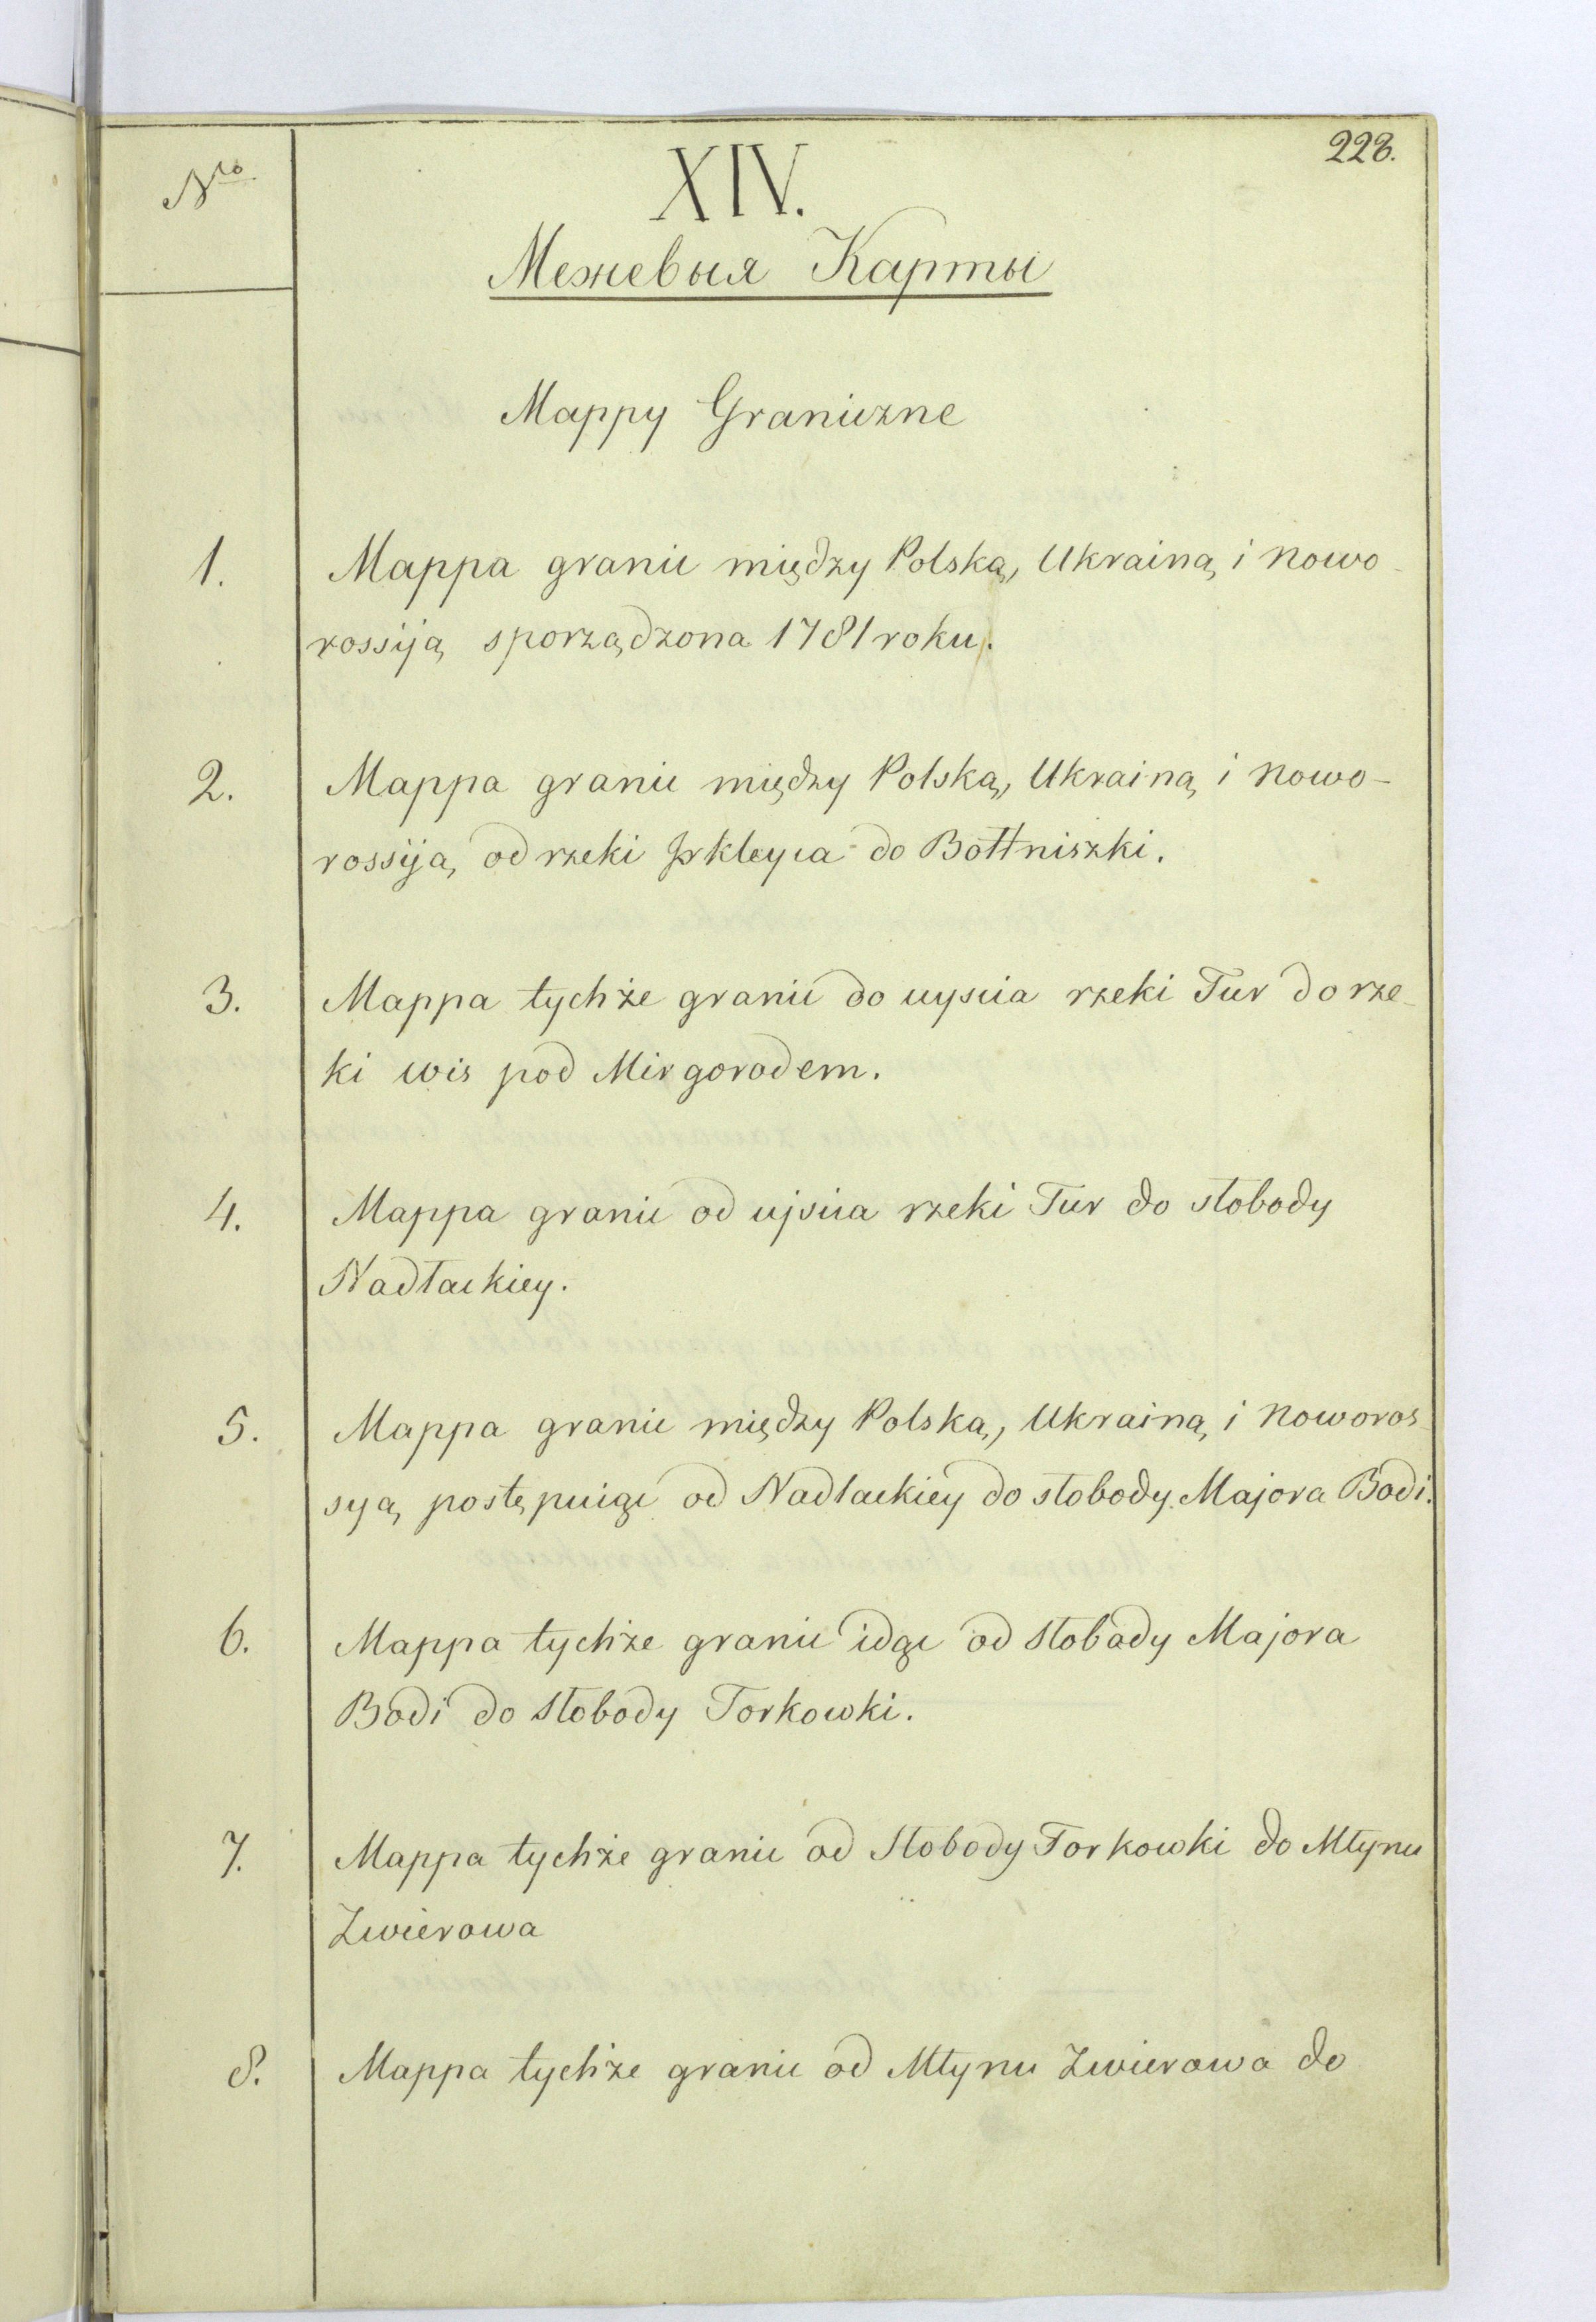 228.
Nro
XIV.
Межевыя Карты
Mappy Graniczne
1. Mappa granic między Polską, Ukrainą i Nowo-
rossiją sporządzona 1781 roku.
2. Mappa granic między Polską, Ukrainą i Nowo-
rossiją od rzeki do Bołtniszki.
3. Mappa tychże granic do uyscia rzeki Tur do rze-
ki wis pod Mirgorodem.
4. Mappa granic od ujscia rzeki Tur do słobody
Nadłackiey.
5. Mappa granic między Polską, Ukrainą i Noworos-
syą postępuiąc od Nadłackiey do słobody Majora Bodi.
6. Mappa tychże granic idąc od Słobady Majora
Bodi do Słobody Torkowki.
7. Mappa tychże granic od Słobody Torkowki do Młynu
Zwierowa
8. Mappa tychże granic od Młynu Zwierowa do